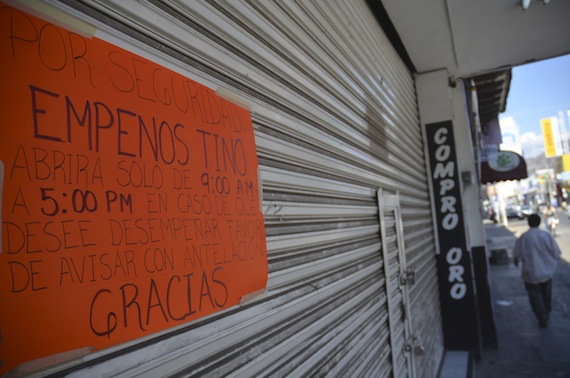 POR SEGURIDAD
EMPENOS TINO
ABRIRA SOLO DE 9:00 AM
A 5:00 PM EN CASO DE QUE
DESEE DESEMPEÑAR FAVOR
DE AVISAR CON ANTELACION
GRACIAS
COMPRO ORO